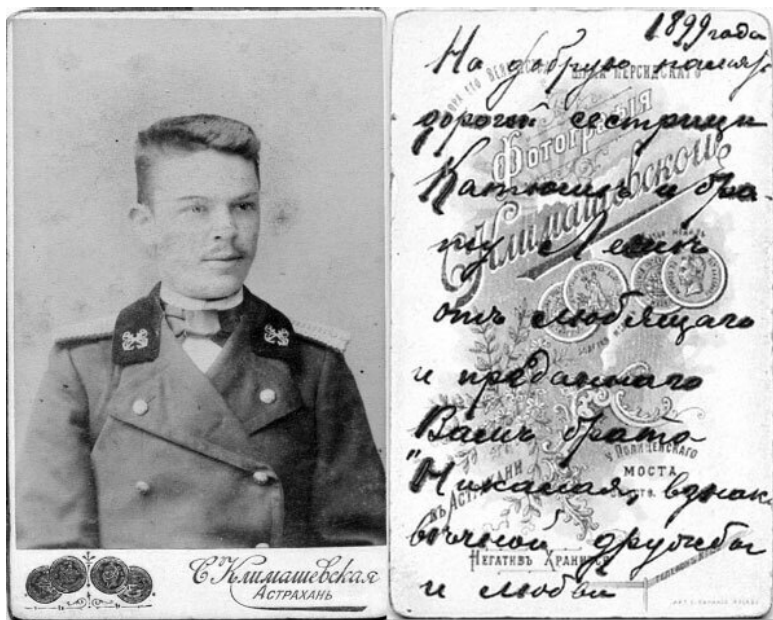 С. Климашевская
Астрахань
1899 года
На добрую память
дорогой сестрицы
Катюшињ и бра
ту Лёшињ
отъ любящаго
и преданнаго
Вамъ брата
"Николая, взнак
вечной дружбы
и любви
ПЕРСИДСКАГО
Фотографія
С. Климашевской
въ Астрахани
у Полицейскаго
моста
Негативъ Хранится